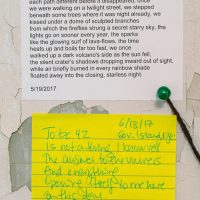 each path different before it disappeared, once
we were walking on a twilight street, we stepped
beneath some trees where it was night already, we
kissed under a dome of sculpted branches
from which the fireflies strung a secret starry sky, the
lights go on sooner every year, the sparks
like the glowing surf of lava-flows, the time
heats up and boils far too fast, we once
walked up a dark volcano's side as the sun fell,
the silent crater's shadows dropping inward out of sight,
while air briefly burned in every rainbow shade
floated away into the closing, starless night.
5/19/2017
6/18/17
To be 42
Gov. Island, NY
Is not a thing I know well
The answer to the universe
And everything
Opening itself to me here
on this day